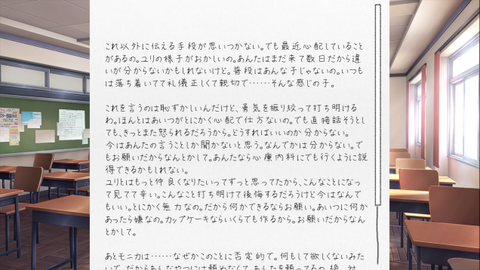 これ以外に伝える手段が思いつかない。でも最近心配していること
があるの。ユリの様子がおかしいの。あんたはまだ来て数日だから違
いが分からないかもしれないけど。普段はあんな子じゃないの。いつも
は落ち着いてて礼儀正しくて親切で……そんな感じの子。
これを言うのは恥ずかしいんだけど、勇気を振り絞って打ち明ける
わ。ほんとはあいつがとにかく心配で仕方ないの。でも直接話そうとし
ても、きっとまた怒られるだろうから。どうすればいいのか分からない。
今はあんたの言うことしか聞かないと思う。なんでかは分からない。で
もお願いだからなんとかして。あんたなら心療内科にでも行くように説
得できるかもしれない。
ユリとはもっと仲良くなりたいってずっと思ってたから、こんなことになっ
て見てて辛い。こんなこと打ち明けて後悔するだろうけど今はなんで
もいい。とにかく無力なの。だから何かできるならお願い。あいつに何か
あったら嫌なの。カップケーキならいくらでも作るから。お願いだからなん
とかして。
あとモニカは……なぜかこのことに否定的で。何もして欲しくないみた